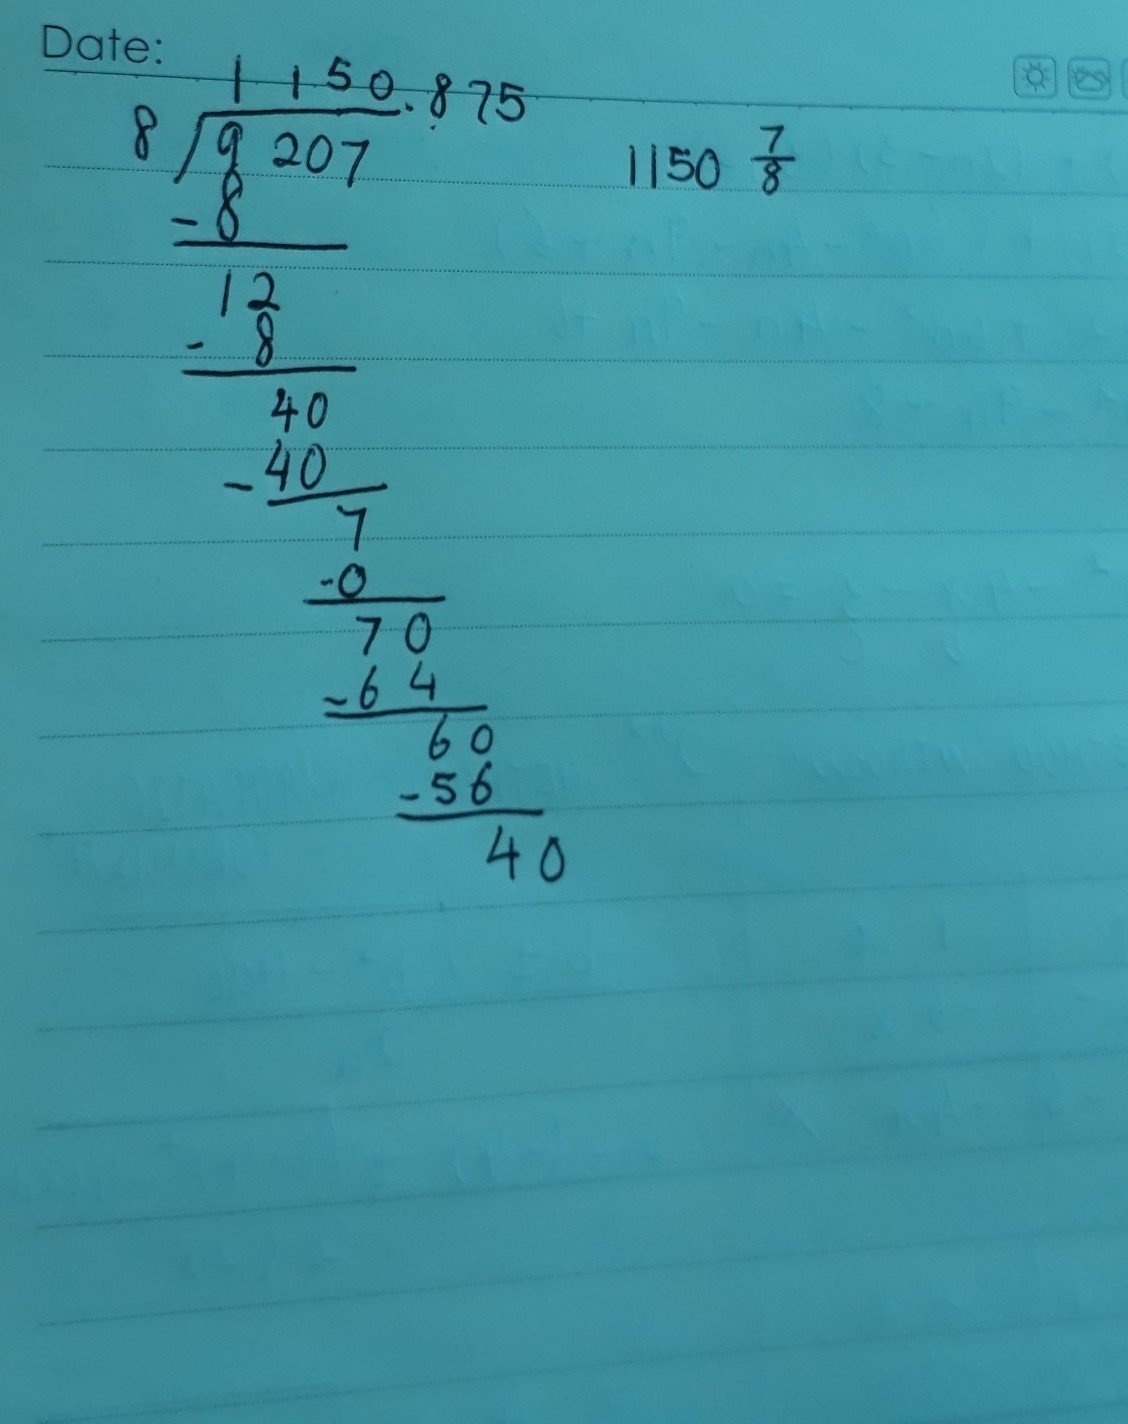 Date:
1 1 5 0.875
8 9 207
1150 7/8
- 8
12
- 8
40
- 40
7
- 0
7 0
- 6 4
6 0
- 5 6
4 0